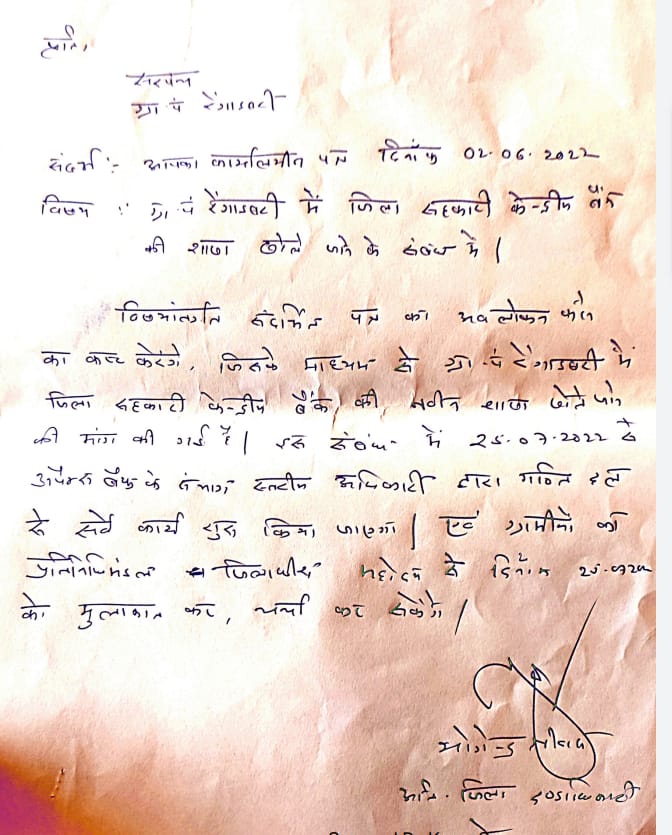 प्रति,
सरपंच
ग्रा पं रेंगाडबरी
संदर्भ :- आपका कार्यालयीन पत्र दिनांक 02.06.2022
विषय : ग्रा. पं रेंगाडबरी में जिला सहकारी केन्द्रीय बैंक
की शाखा खोले जाने के संबंध में |
विषयांतर्गत संदर्भित पत्र का अवलोकन करने
का कष्ट करेंगे, जिसके माध्यम से ग्रा. पं रेंगाडबरी में
जिला सहकारी केन्द्रीय बैंक की, नवीन शाखा खोले जाने
की मांग की गई है | इस संबंध में 25.07.2022 से
बैंक के संभाग स्तरीय अधिकारी द्वारा गठित दल
से सर्वे कार्य शुरू किया जाएगा | एवं ग्रामीणों का
प्रतिनिधिमंडल जिलाधीश महोदय से दिनांक
को मुलाकात कर, चर्चा कर सकेंगे |
योगेन्द्र
जिला